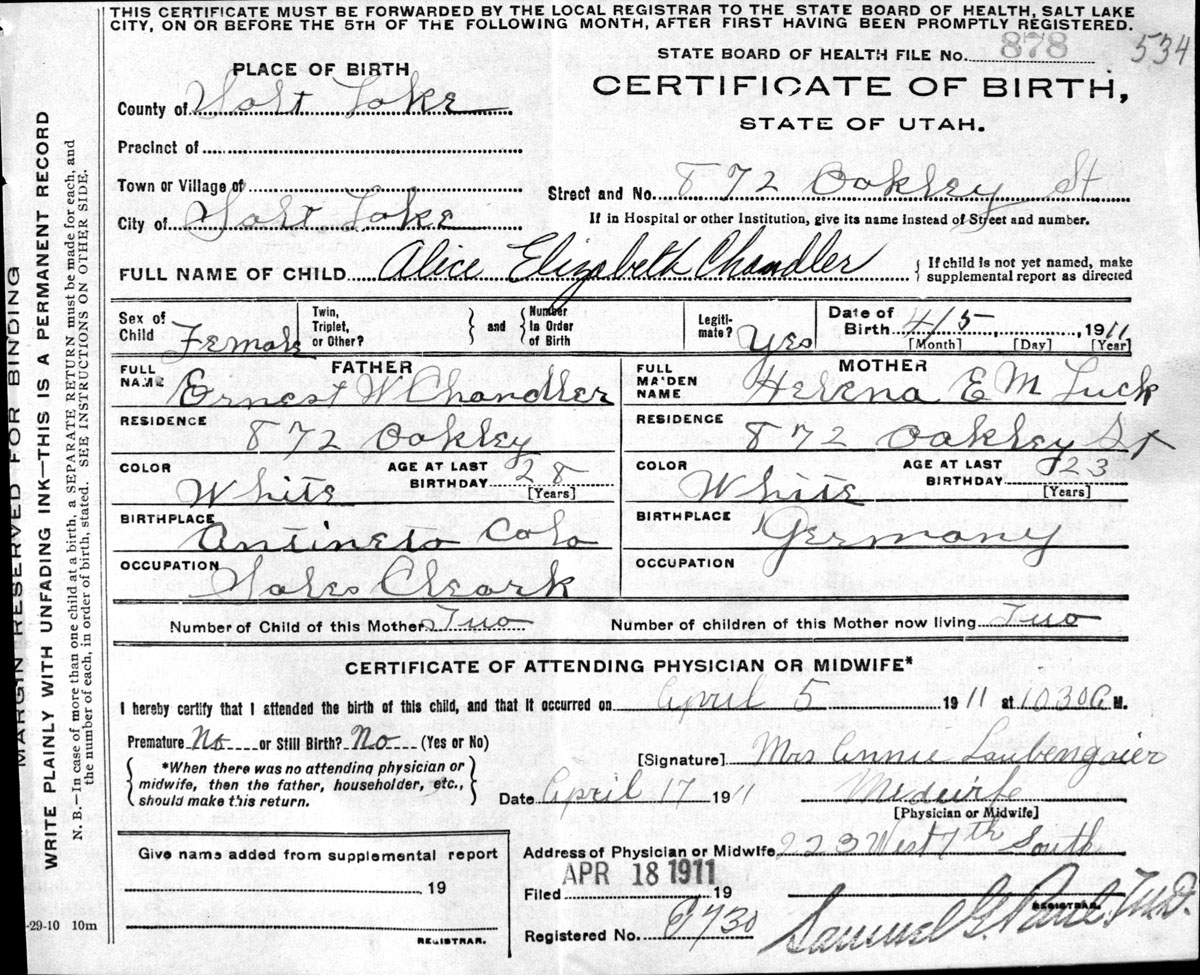 THIS CERTIFICATE MUST BE FORWARDED BY THE LOCAL REGISTRAR TO THE STATE BOARD OF HEALTH, SALT LAKE
CITY, ON OR BEFORE THE 5TH OF THE FOLLOWING MONTH, AFTER FIRST HAVING BEEN PROMPTLY REGISTERED.
STATE BOARD OF HEALTH FILE No. 878 534
PLACE OF BIRTH
CERTIFICATE OF BIRTH,
STATE OF UTAH.
County of Salt Lake
Precinct of
Town or Village of
Street and No. 872 Oakley St
City of Salt Lake
If in Hospital or other Institution, give its name instead of Street and number.
FULL NAME OF CHILD Alice Elizabeth Chandler { If child is not yet named, make
supplemental report as directed
Sex of Child Female Twin, Triplet, or Other? } and { Number In Order of Birth Legiti-mate? Yes Date of Birth 4/5, 1911
[Month] [Day] [Year]
FATHER MOTHER
FULL NAME Ernest W Chandler FULL MAIDEN NAME Helena E M Luck
RESIDENCE 872 Oakley RESIDENCE 872 Oakley St
COLOR White AGE AT LAST BIRTHDAY 28 [Years] COLOR White AGE AT LAST BIRTHDAY 23 [Years]
BIRTHPLACE Antineto Colo BIRTHPLACE Germany
OCCUPATION Sales Cleark OCCUPATION
Number of Child of this Mother Two Number of children of this Mother now living Two
CERTIFICATE OF ATTENDING PHYSICIAN OR MIDWIFE*
I hereby certify that I attended the birth of this child, and that it occurred on April 5 1911 at 1030 A M.
Premature No or Still Birth? No (Yes or No)
[Signature] Mrs Annie Laubengaier
{ *When there was no attending physician or
midwife, then the father, householder, etc.,
should make this return. }
Date April 17 1911 Midwife
[Physician or Midwife]
Give name added from supplemental report
19
REGISTRAR.
Address of Physician or Midwife 223 West 7th South
Filed APR 18 1911 19
REGISTRAR.
Registered No. 6730 Samuel G. Paul M.D.
-29-10 10m
MARGIN RESERVED FOR BINDING
WRITE PLAINLY WITH UNFADING INK—THIS IS A PERMANENT RECORD
N. B.—In case of more than one child at a birth, a SEPARATE RETURN must be made for each, and
the number of each, in order of birth, stated. SEE INSTRUCTIONS ON OTHER SIDE.